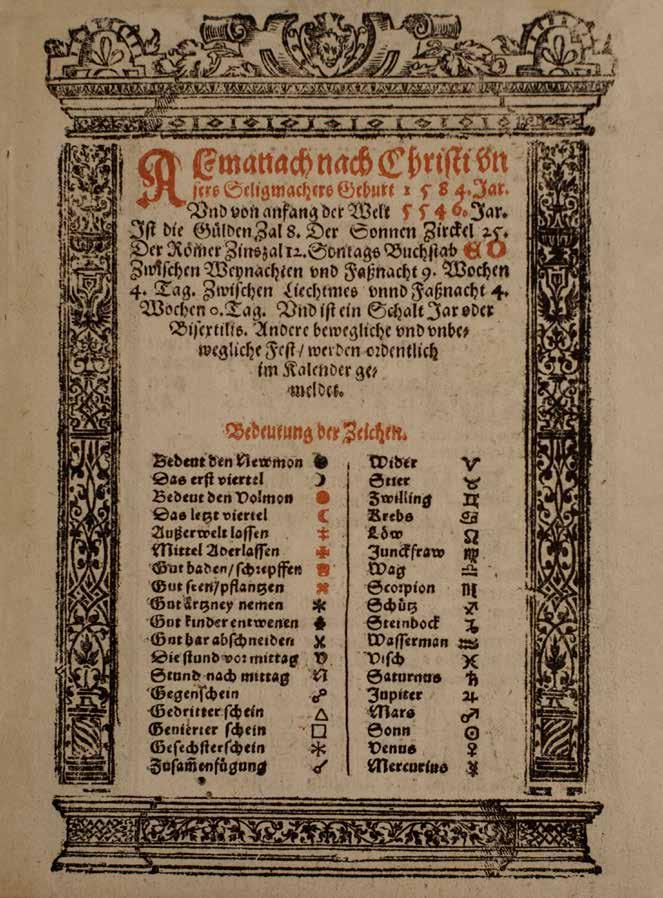 Almanach nach Christi vn
sers Seligmachers Geburt 1584. Jar.
Vnd von anfang der Welt 5546. Jar.
Ist die Gülden Zal 8. Der Sonnen Zirckel 25.
Der Römer Zinszal 12. Sontags Buchstab E D
Zwischen Weynachten vnd Faßnacht 9. Wochen
4. Tag. Zwischen Liechtmes vnnd Faßnacht 4.
Wochen 0. Tag. Vnd ist ein Schalt Jar oder
Bisextilis. Andere bewegliche vnd vnbe-
wegliche Fest / werden ordentlich
im Kalender ge-
meldet.
Bedeutung der Zeichen.
Bedeut den Newmon
Das erst viertel ☽
Bedeut den Volmon
Das letzt viertel ☾
Außerwelt lassen
Mittel Aderlassen
Gut baden / schrepffen
Gut seen / pflantzen
Gut ärtzney nemen
Gut kinder entwenen
Gut har abschneiden
Die stund vor mittag
Stund nach mittag
Gegenschein ☍
Gedritter schein △
Genierter schein □
Gesechsterschein ⚹
Zusam̃enfügung ☌
Wider ♈
Stier ♉
Zwilling ♊
Krebs ♋
Löw ♌
Junckfraw ♍
Wag ♎
Scorpion ♏
Schütz ♐
Steinbock ♑
Wasserman ♒
Visch ♓
Saturnus ♄
Jupiter ♃
Mars ♂
Sonn ☉
Venus ♀
Mercurius ☿